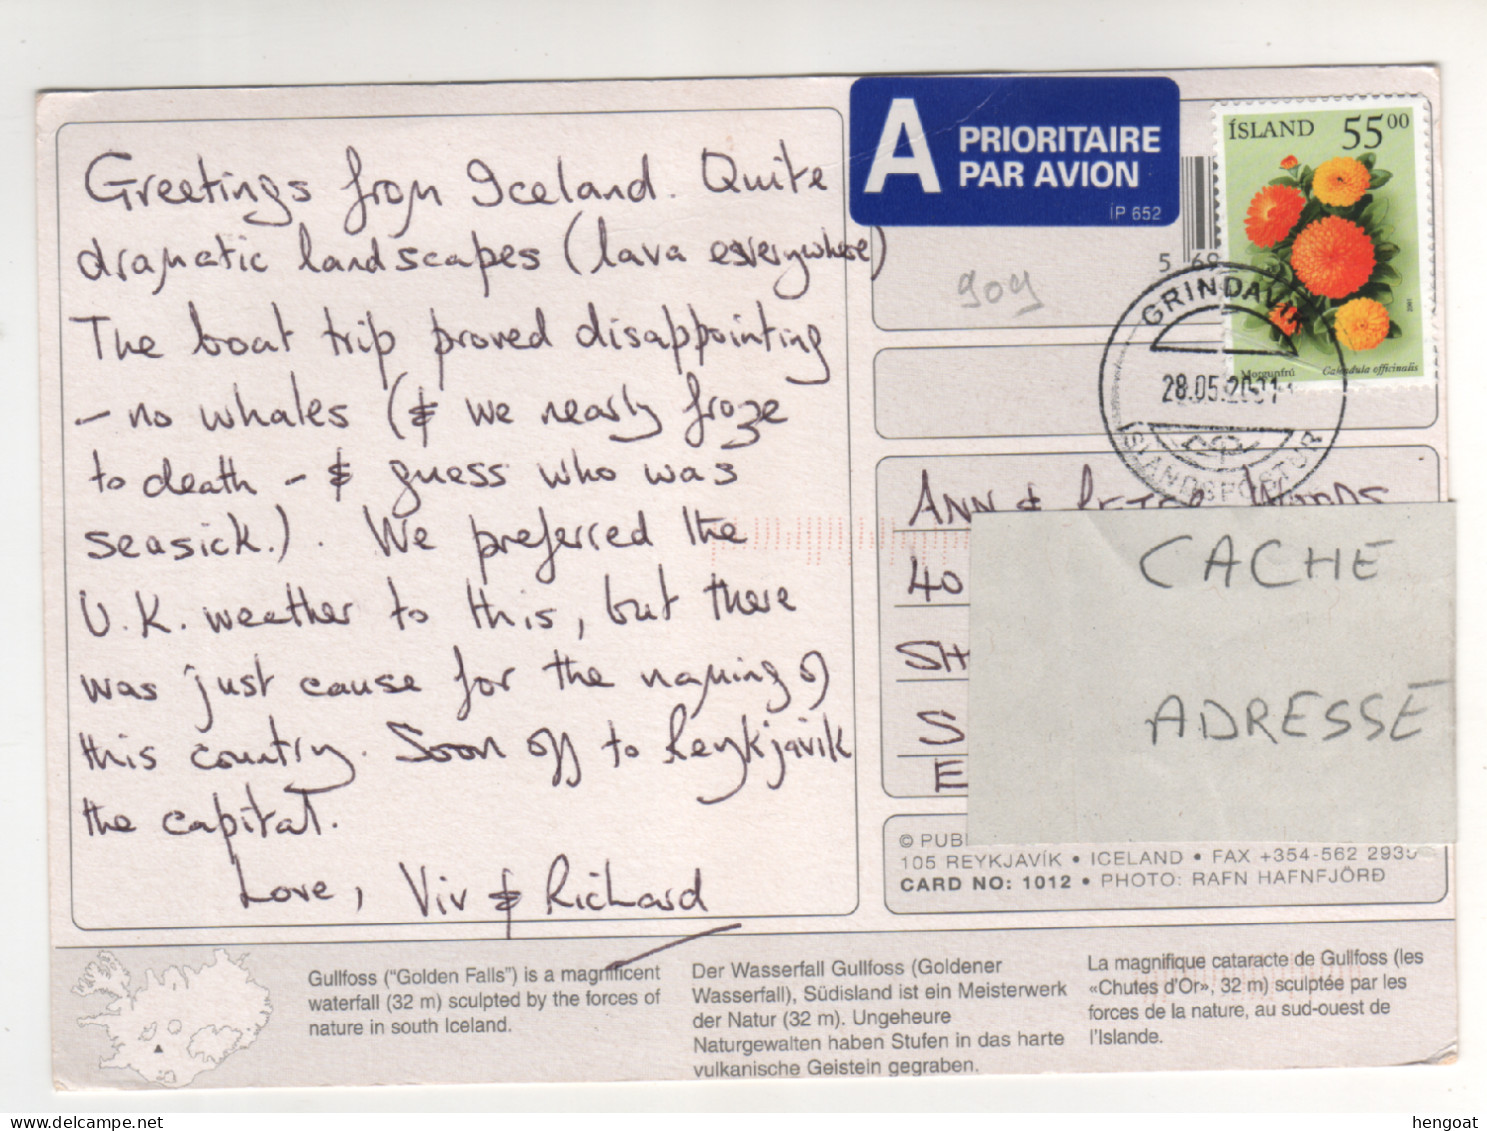 Greetings from Iceland. Quite
dramatic landscapes (lava everywhere)
The boat trip proved disappointing
- no whales (& we nearly froze
to death - & guess who was
seasick.). We preferred the
U.K. weather to this, but there
was just cause for the naming of
this country. Soon off to Reykjavik
the capital.
Love, Viv & Richard
A PRIORITAIRE
PAR AVION
ÍP 652
ÍSLAND 5500
Morgunfrú Calendula officinalis
2001
5 69
909
GRINDAVÍK
28.05.2001
ÍSLANDSPÓSTUR
ANN & PETER WOODS
40
SH
S
E
CACHE
ADRESSE
© PUB
105 REYKJAVÍK • ICELAND • FAX +354-562 293
CARD NO: 1012 • PHOTO: RAFN HAFNFJÖRÐ
Gullfoss ("Golden Falls") is a magnificent
waterfall (32 m) sculpted by the forces of
nature in south Iceland.
Der Wasserfall Gullfoss (Goldener
Wasserfall), Südisland ist ein Meisterwerk
der Natur (32 m). Ungeheure
Naturgewalten haben Stufen in das harte
vulkanische Geistein gegraben.
La magnifique cataracte de Gullfoss (les
«Chutes d'Or», 32 m) sculptée par les
forces de la nature, au sud-ouest de
l'Islande.
hengoat